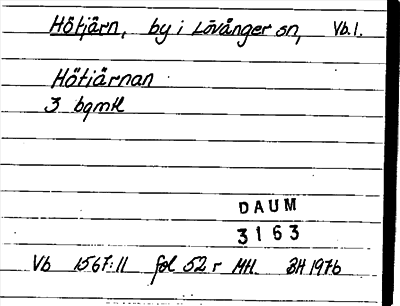 Hötjärn, by i Lövånger sn, Vb.l.
Hötiärnan
3 bgmtl
DAUM
3163
Vb 1567:11 fol 52 r MH. BH 1976